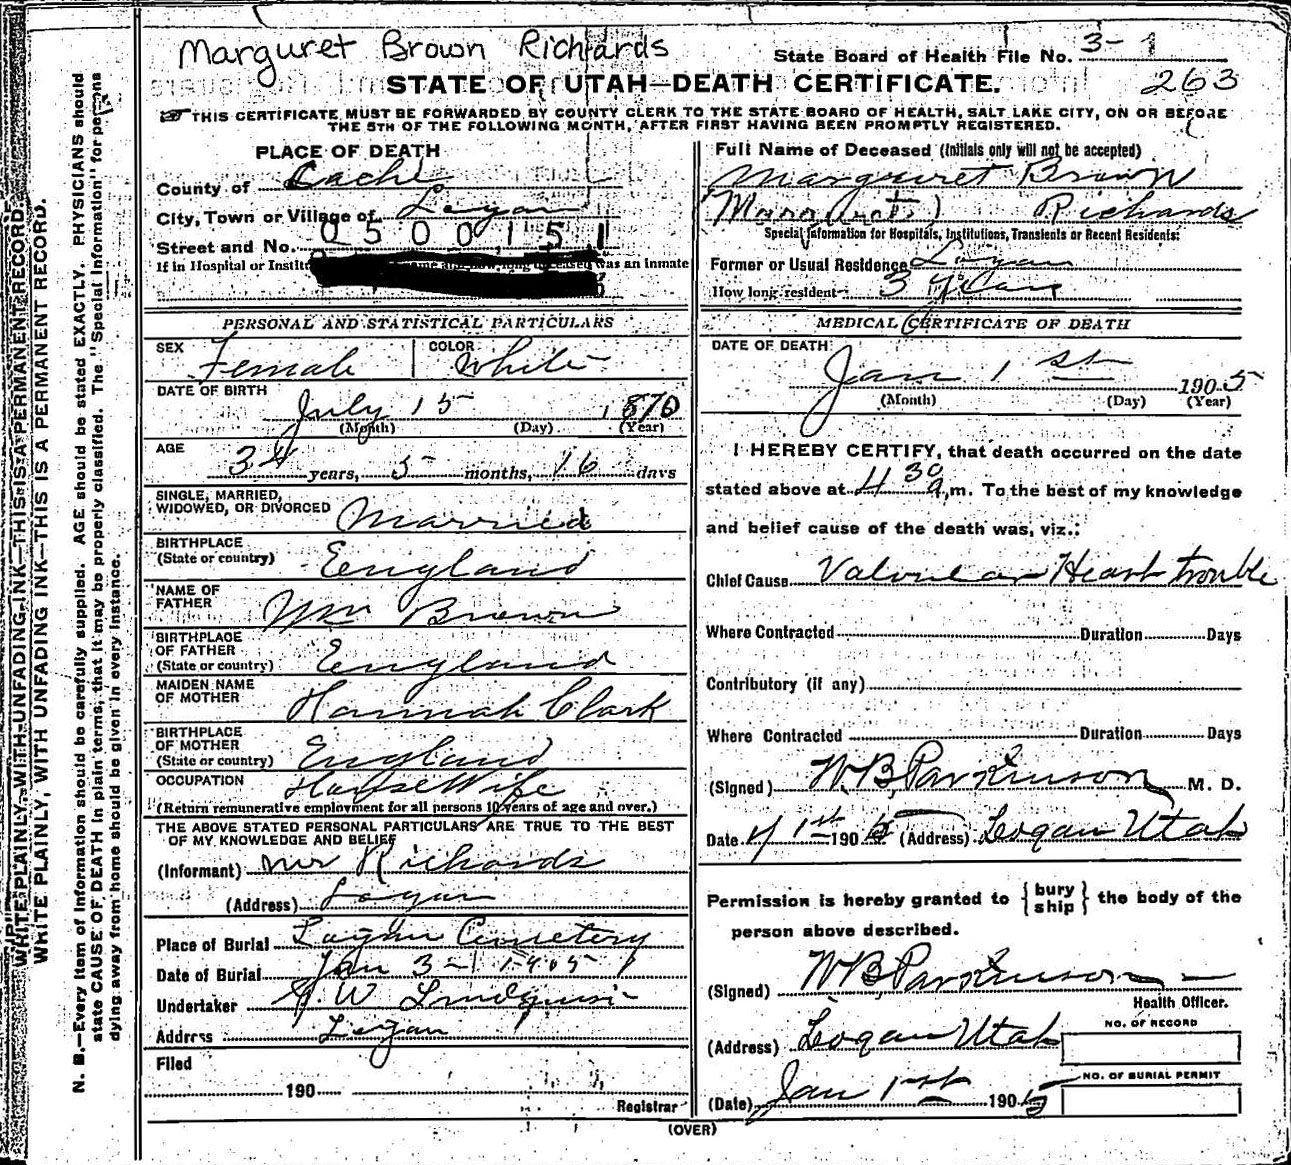 Marguret Brown Richards
State Board of Health File No. 3-1
263
STATE OF UTAH—DEATH CERTIFICATE.
THIS CERTIFICATE MUST BE FORWARDED BY COUNTY CLERK TO THE STATE BOARD OF HEALTH, SALT LAKE CITY, ON OR BEFORE
THE 5TH OF THE FOLLOWING MONTH, AFTER FIRST HAVING BEEN PROMPTLY REGISTERED.
WRITE PLAINLY, WITH UNFADING INK—THIS IS A PERMANENT RECORD.
WRITE PLAINLY, WITH UNFADING INK—THIS IS A PERMANENT RECORD.
N. B.—Every item of information should be carefully supplied. AGE should be stated EXACTLY. PHYSICIANS should
state CAUSE OF DEATH in plain terms, that it may be properly classified. The "Special Information" for persons
dying away from home should be given in every instance.
PLACE OF DEATH
County of Cache
City, Town or Village of Logan
Street and No. 0500151
If in Hospital or Institu was an inmate
PERSONAL AND STATISTICAL PARTICULARS
SEX Female COLOR White
DATE OF BIRTH
July 15 1870
(Month) (Day) (Year)
AGE
34 years, 5 months, 16 days
SINGLE, MARRIED,
WIDOWED, OR DIVORCED Married
BIRTHPLACE
(State or country) England
NAME OF
FATHER Wm Brown
BIRTHPLACE
OF FATHER
(State or country) England
MAIDEN NAME
OF MOTHER Hannah Clark
BIRTHPLACE
OF MOTHER
(State or country) England
OCCUPATION House Wife
(Return remunerative employment for all persons 10 years of age and over.)
THE ABOVE STATED PERSONAL PARTICULARS ARE TRUE TO THE BEST
OF MY KNOWLEDGE AND BELIEF
(Informant) Mr Richards
(Address) Logan
Place of Burial Logan Cemetery
Date of Burial Jan 3- 1905
Undertaker W Lindquist
Address Logan
Filed
190
Registrar
Full Name of Deceased (Initials only will not be accepted)
Marguret Brown
Richards
Special Information for Hospitals, Institutions, Transients or Recent Residents:
Former or Usual Residence Logan
How long resident 3 years
MEDICAL CERTIFICATE OF DEATH
DATE OF DEATH:
Jan 1st 1905
(Month) (Day) (Year)
I HEREBY CERTIFY, that death occurred on the date
stated above at 4 30 a.m. To the best of my knowledge
and belief cause of the death was, viz.:
Chief Cause Valvular Heart trouble
Where Contracted Duration Days
Contributory (if any)
Where Contracted Duration Days
(Signed) W.B. Parkinson M. D.
Date 1st 1905 (Address) Logan Utah
Permission is hereby granted to {bury ship} the body of the
person above described.
(Signed) W B Parkinson
Health Officer.
(Address) Logan Utah
NO. OF RECORD
NO. OF BURIAL PERMIT
(Date) Jan 1st 1905
(OVER)